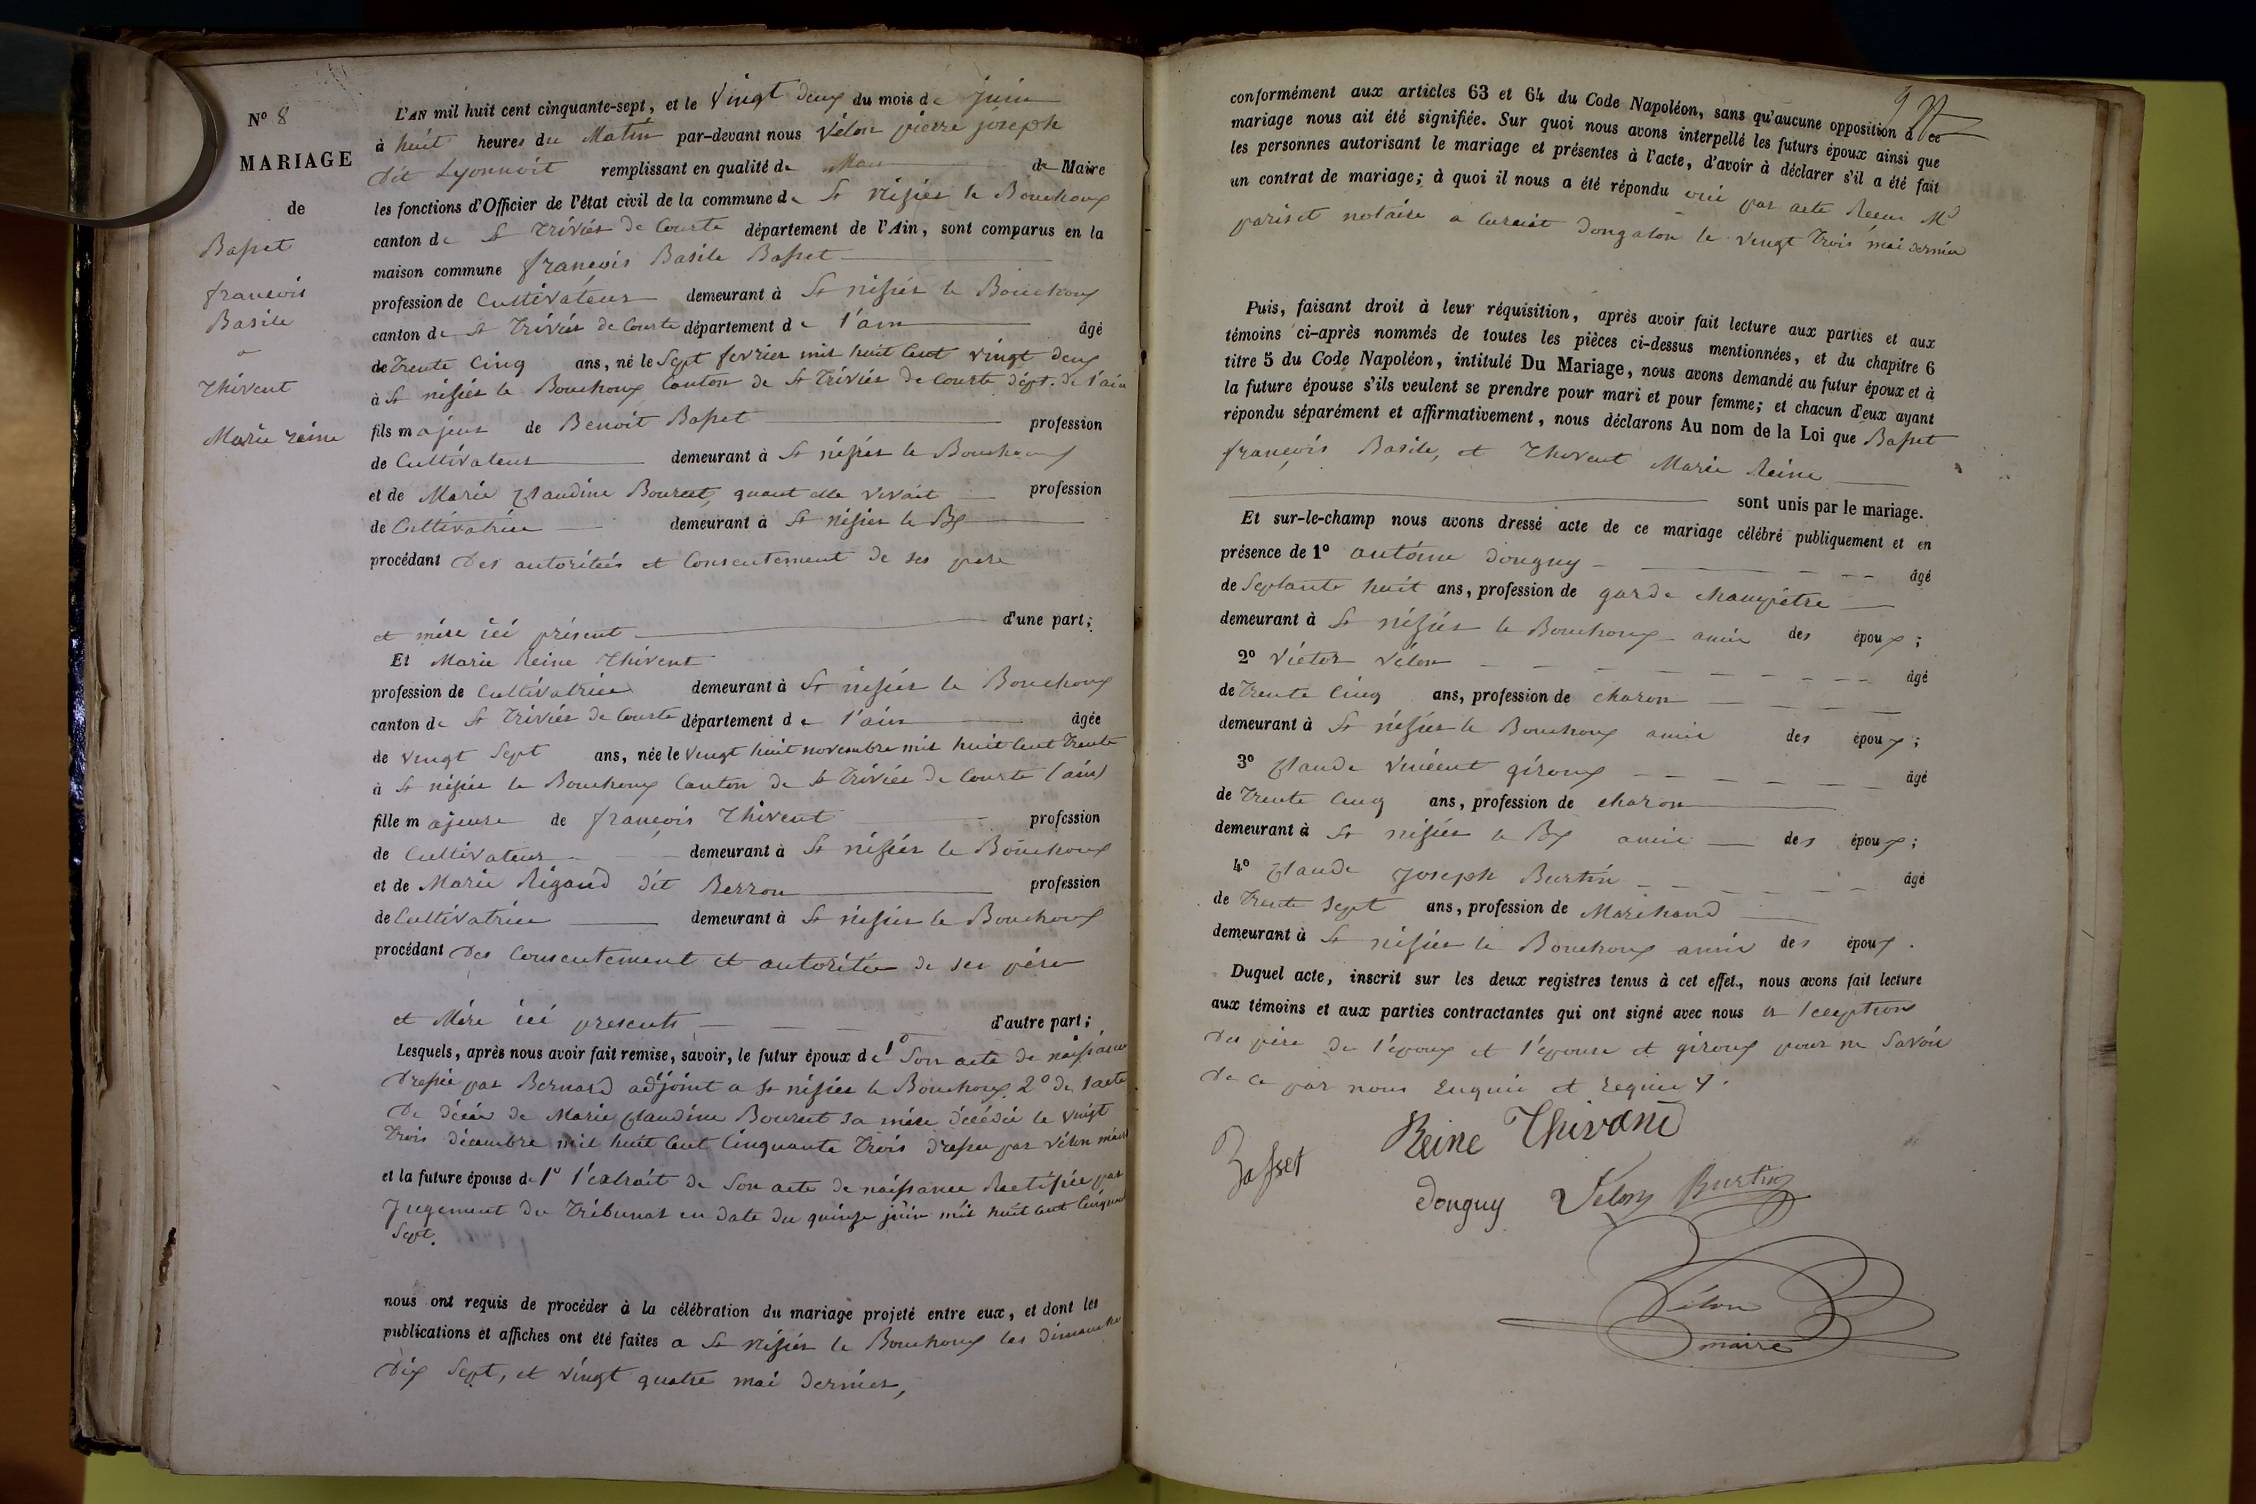 N° 8
MARIAGE
de
Basset
françois
Basile
a
Thivent
Marie reine
L'AN mil huit cent cinquante-sept, et le Vingt deux du mois de juin
à huit heures du Matin par-devant nous Vélon pierre joseph
dit Lyonnoit remplissant en qualité de Mai de Maire
les fonctions d'Officier de l'état civil de la commune de St nisier le Bouchoux
canton de St Trivier de Courte département de l'Ain, sont comparus en la
maison commune françois Basile Basset
profession de Cultivateur demeurant à St nisier le Bouchoux
canton de St Trivier de Courte département de l'ain âgé
de Trente Cinq ans, né le Sept fevrier mil huit Cent vingt deux
à St nisier le Bouchoux Canton de St Trivier de Courte dépt. de l'ain
fils majeur de Benoit Basset profession
de Cultivateur demeurant à St nisier le Bouchoux
et de Marie Claudine Bourcet, quant elle vivait profession
de Cultivatrice demeurant à St nisier le Bx
procédant Des autoritées et Consentement de ses pere
et mère ici présent d'une part;
Et Marie Reine Thivent
profession de Cultivatrice demeurant à St nisier le Bouchoux
canton de St Trivier de Courte département de l'ain âgée
de vingt Sept ans, née le vingt huit novembre mil huit Cent Trente
à St nisier le Bouchoux Canton de St Trivier de Courte (ain)
fille majeure de françois Thivent profession
de Cultivateur demeurant à St nisier le Bouchoux
et de Marie Rigaud dit Berron profession
de Cultivatrice demeurant à St nisier le Bouchoux
procédant Des Consentement et autoritée de ses père
et Mère ici presents d'autre part;
Lesquels, après nous avoir fait remise, savoir, le futur époux de 1° Son acte de naissance
Dressé par Bernard adjoint a St nisier le Bouchoux 2° de l'acte
De décès de Marie Claudine Bourcet sa mère décédée le vingt
Trois décembre mil huit Cent Cinquante Trois dressé par vélon maire
et la future épouse de 1° l'extrait de Son acte de naissance Rectifiée par
Jugement du Tribunat en date du quinze juin mil huit Cent Cinquante
Sept.
nous ont requis de procéder à la célébration du mariage projeté entre eux, et dont les
publications et affiches ont été faites a St nisier le Bouchoux les dimanche
Dix Sept, et vingt quatre mai dernier,
conformément aux articles 63 et 64 du Code Napoléon, sans qu'aucune opposition à ce
mariage nous ait été signifiée. Sur quoi nous avons interpellé les futurs époux ainsi que
les personnes autorisant le mariage et présentes à l'acte, d'avoir à déclarer s'il a été fait
un contrat de mariage; à quoi il nous a été répondu oui par acte Recu Me
pariset notaire a Curciat dongalon le vingt Trois mai dernier
Puis, faisant droit à leur réquisition, après avoir fait lecture aux parties et aux
témoins ci-après nommés de toutes les pièces ci-dessus mentionnées, et du chapitre 6
titre 5 du Code Napoléon, intitulé Du Mariage, nous avons demandé au futur époux et à
la future épouse s'ils veulent se prendre pour mari et pour femme; et chacun d'eux ayant
répondu séparément et affirmativement, nous déclarons Au nom de la Loi que Basset
françois Basile, et Thivent Marie Reine
sont unis par le mariage.
Et sur-le-champ nous avons dressé acte de ce mariage célébré publiquement et en
présence de 1° antoine Donguy âgé
de Septante huit ans, profession de garde champêtre
demeurant à St nisier le Bouchoux amie des époux;
2° Victor Vélon âgé
de Trente Cinq ans, profession de charon
demeurant à St nisier le Bouchoux amie des époux;
3° Claude Vincent giroux âgé
de Trente Cinq ans, profession de charon
demeurant à St nisier le Bx amie des époux;
4° Claude Joseph Burtin âgé
de Trente Sept ans, profession de Marchand
demeurant à St nisier le Bouchoux amie des époux.
Duquel acte, inscrit sur les deux registres tenus à cet effet, nous avons fait lecture
aux témoins et aux parties contractantes qui ont signé avec nous a l'exeption
Des père de l'époux et l'épouse et giroux pour ne Savoir
De ce par nous Enquis et Requis
Basset
Reine Thivant
Donguy Vélon Burtin
Vélon
maire